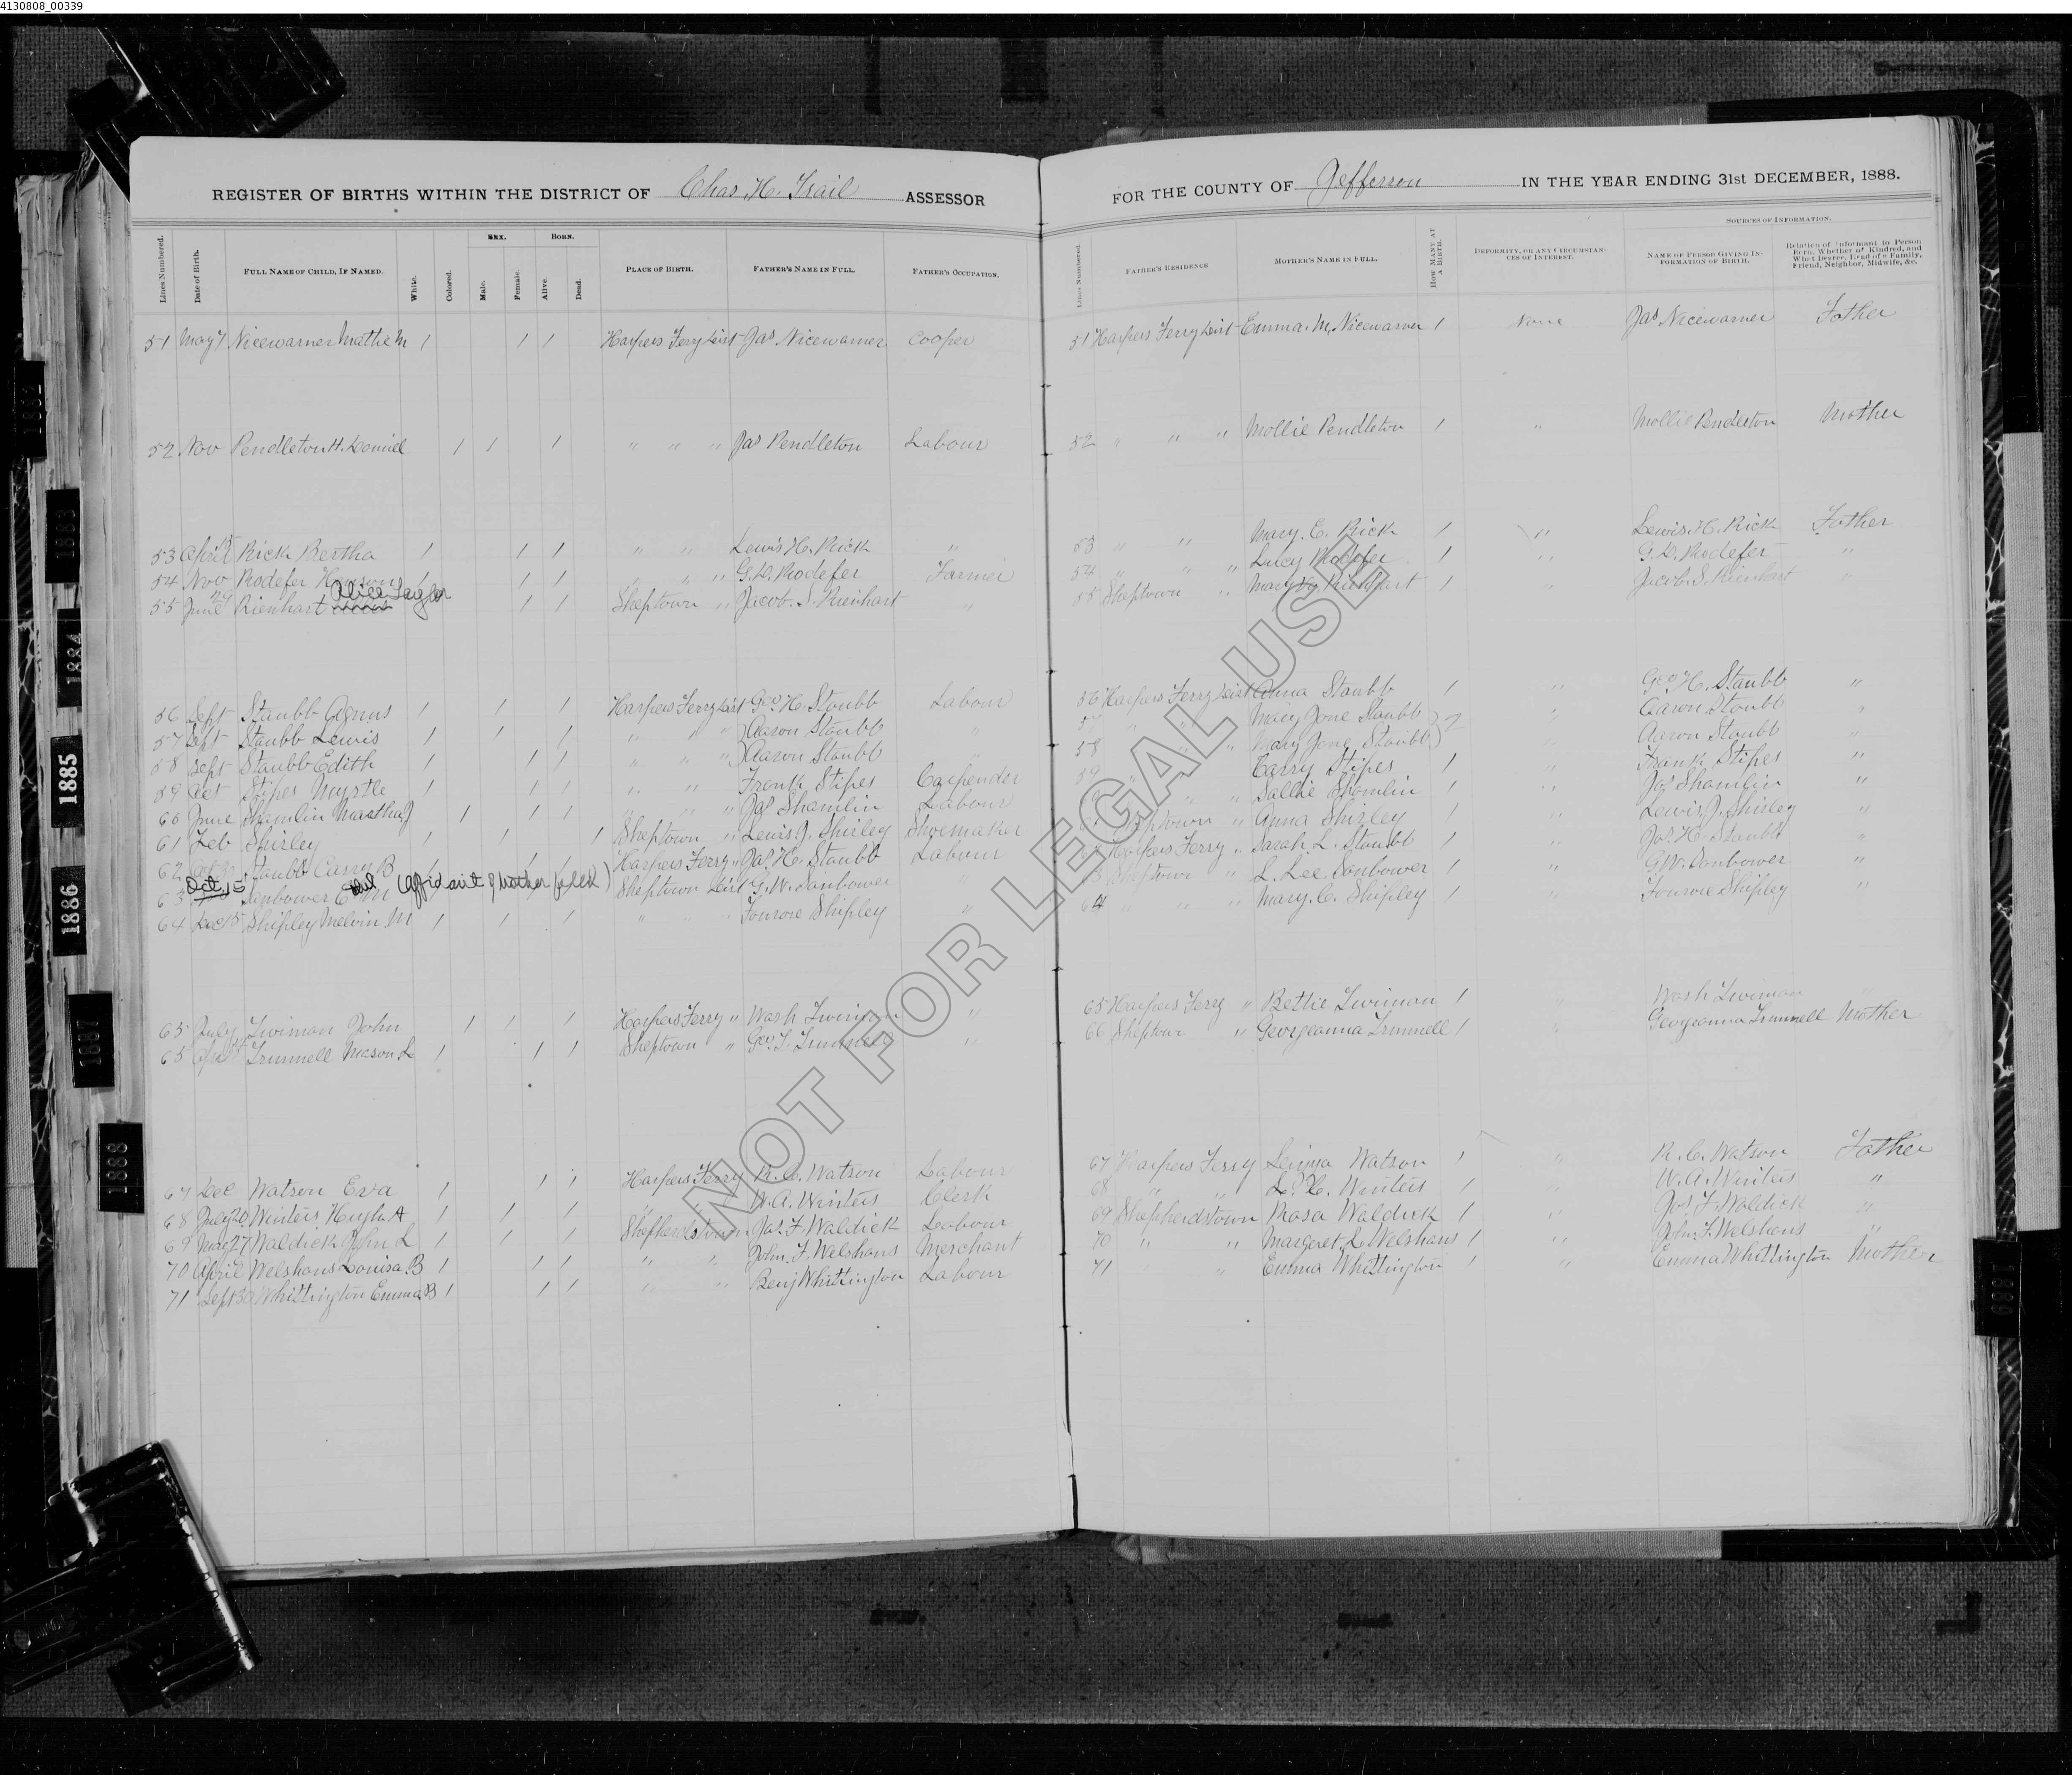 4130808_00339
REGISTER OF BIRTHS WITHIN THE DISTRICT OF Chas. H. Trail ASSESSOR
FOR THE COUNTY OF Jefferson IN THE YEAR ENDING 31st DECEMBER, 1888.
Lines Numbered. Date of Birth. FULL NAME OF CHILD, IF NAMED. White. Colored. SEX. Male. Female. BORN. Alive. Dead. PLACE OF BIRTH. FATHER'S NAME IN FULL. FATHER'S OCCUPATION.
Lines Numbered. FATHER'S RESIDENCE MOTHER'S NAME IN FULL. HOW MANY AT A BIRTH. DEFORMITY, OR ANY CIRCUMSTANCES OF INTEREST. SOURCES OF INFORMATION. NAME OF PERSON GIVING INFORMATION OF BIRTH. Relation of Informant to Person Born, Whether of Kindred, and What Degree, Head of a Family, Friend, Neighbor, Midwife, &c.
51 May 7 Nicewarner Mattie M 1 1 1 Harpers Ferry Dist Jas Nicewarner Cooper 51 Harpers Ferry Dist Emma. M. Nicewarner 1 None Jas Nicewarner Father
52 Nov Pendleton H. Daniel 1 1 1 " " " Jas Pendleton Labour 52 " " " Mollie Pendleton 1 " Mollie Pendleton Mother
53 April Rick Bertha 1 1 1 " " Lewis H. Rick " 53 " " Mary. E. Rick 1 " Lewis. H. Rick Father
54 Nov Rodefer 1 1 1 " " " G. D. Rodefer Farmer 54 " " " Lucy Rodefer 1 " G. D. Rodefer "
55 June 29 Rienhart Alice Taylor 1 1 Sheptown " Jacob. S. Rienhart " 55 Sheptown " Mary Rienhart 1 " Jacob. S. Rienhart "
56 Sept Staubb Agnus 1 1 1 Harpers Ferry Dist Geo H. Staubb Labour 56 Harpers Ferry Dist Anna Staubb 1 " Geo H. Staubb "
57 Sept Staubb Lewis 1 1 1 " " " Aaron Staubb " 57 " Mary Jane Staubb 2 " Aaron Staubb "
58 Sept Staubb Edith 1 1 1 " " " Aaron Staubb " 58 " " Mary Jane Staubb Aaron Staubb "
59 Oct Stipes Myrtle 1 1 1 " " Frank Stipes Carpender 59 " Carry Stipes 1 " Frank Stipes "
60 June Shamlin Martha J 1 1 1 " " " Jas Shamlin Labour " " Sallie Shamlin 1 " Jas Shamlin "
61 Feb Shirley 1 1 1 Sheptown " Lewis J. Shirley Shoemaker Sheptown " Anna Shirley 1 " Lewis J. Shirley "
62 Staubb Carry B 1 1 Harpers Ferry " Jas H. Staubb Labour Harpers Ferry " Sarah L. Staubb 1 " Jas H. Staubb "
63 Oct 15 Sanbower (affidavit of Mother Sheptown Dist G. W. Sanbower " 63 Sheptown " L. Lee. Sanbower 1 " G. W. Sanbower "
64 Dec 15 Shipley Melvin. M 1 1 1 " " " Shipley " 64 " " " Mary. C. Shipley 1 " Shipley "
65 July Twiman John 1 1 1 Harpers Ferry " Wash Twiman " 65 Harpers Ferry " Bettie Twiman 1 " Wash Twiman
65 Trunnell Mason L 1 1 1 Sheptown " Geo. T. Trunnell " 66 Sheptown " Georgeanna Trunnell 1 " Georgeanna Trunnell Mother
67 Dec Watson Eva 1 1 1 Harpers Ferry R. C. Watson Labour 67 Harpers Ferry Watson 1 " R. C. Watson Father
68 July 20 Winters Hugh A 1 1 1 " " W. A. Winters Clerk 68 " " Winters 1 " W. A. Winters "
69 May 27 Waldick John L 1 1 1 Shepherdstown Jas. F. Waldick Labour 69 Shepherdstown Rosa Waldick 1 " Jas. F. Waldick "
70 April Welshans Louisa. B 1 1 1 " " John. F. Welshans Merchant 70 " " Margaret. L. Welshans 1 " John. F. Welshans "
71 Sept 30 Whittington Emma B 1 1 1 " " Benj Whittington Labour 71 " " Emma Whittington 1 " Emma Whittington Mother
NOT FOR LEGAL USE
1882
1883
1884
1885
1886
1887
1888
1889